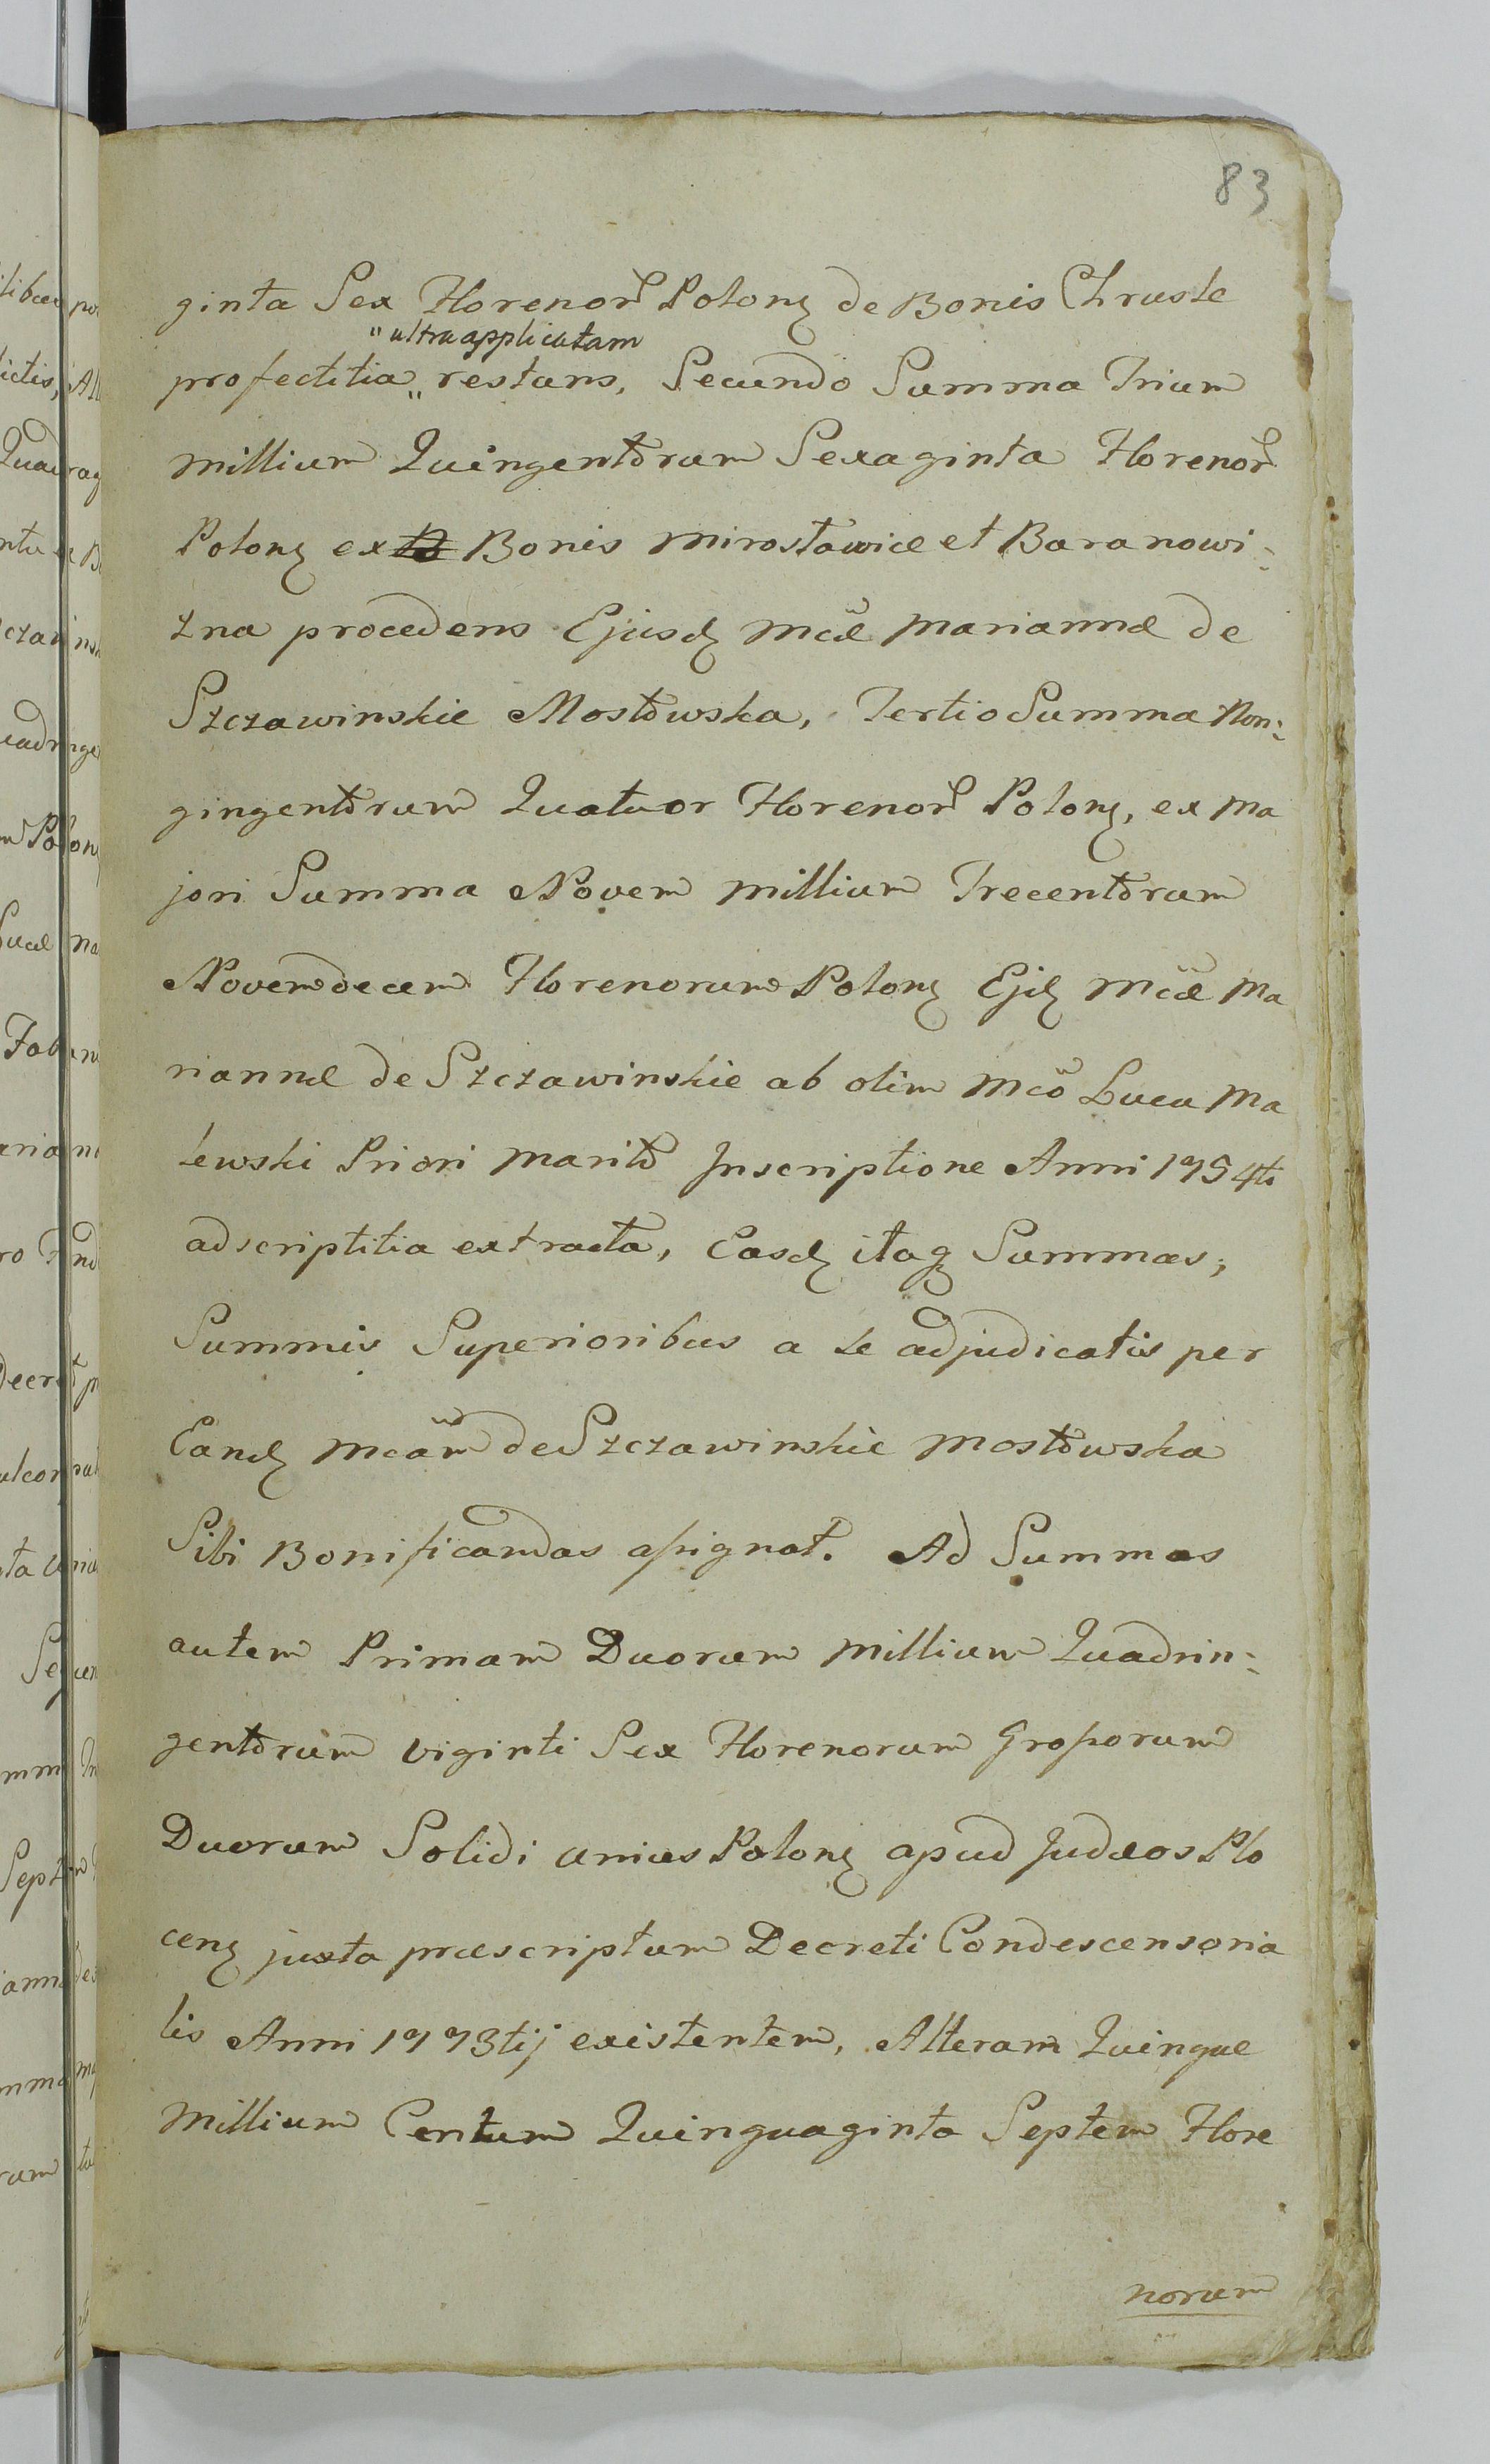 83
ginta Sex Florenor Polonꝫ de Bonis Chruste
"ultra applicatam
profectitia „ restans, Secundo Summa Trium
millium Quingentorum Sexaginta Florenor
Polonꝫ ex Bonis Mirosławice et Baranowi:
zna procedens Ejusdꝫ Mcæ Mariannæ de
Szczawinskie Mostowska, Tertio Summa Non:
gingentorum Quatuor Florenor Polonꝫ, ex Ma
jori Summa Novem millium Trecentorum
Novemdecem Florenorum Polonꝫ Ejdꝫ Mcæ Ma
riannæ de Szczawinskie ab olim Mco Luca Ma
lewski Priori Marito Inscriptione Anni 1754ti
adscriptitia extracta, Easdꝫ itaqꝫ Summas,
Summis Superioribus a se adjudicatis per
Eandꝫ Mcam de Szczawinskie Mostowska
Sibi Bonificandas assignat. Ad Summas
autem Primam Duorum Millium Quadrin:
gentorum viginti Sex Florenorum Grossorum
Duorum Solidi unius Polonꝫ apud Judæos Plo
cenꝫ juxta præscriptum Decreti Condescensoria
lis Anni 1773tij existentem, Alteram Quinque
Millium Centum Quinquaginta Septem Flore
norum